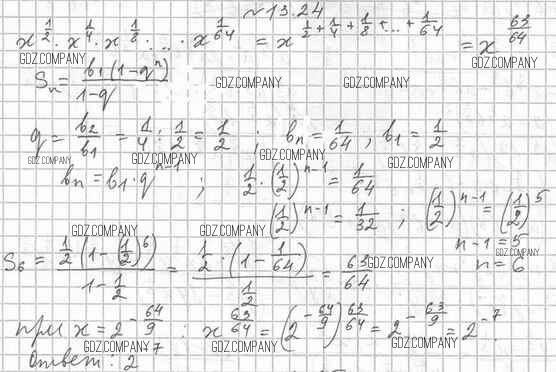 №13.24
x^{1/2} · x^{1/4} · x^{1/8} · ... · x^{1/64} = x^{1/2 + 1/4 + 1/8 + ... + 1/64} = x^{63/64}
GDZ.COMPANY GDZ.COMPANY
S_n = b_1(1-q^n) / 1-q GDZ.COMPANY GDZ.COMPANY
q = b_2/b_1 = 1/4 : 1/2 = 1/2 ; b_n = 1/64 , b_1 = 1/2
GDZ.COMPANY GDZ.COMPANY GDZ.COMPANY
b_n = b_1 · q^{n-1} ; 1/2 · (1/2)^{n-1} = 1/64
(1/2)^{n-1} = 1/32 ; (1/2)^{n-1} = (1/2)^5
GDZ.COMPANY GDZ.COMPANY
n-1 = 5
GDZ.COMPANY
n = 6
S_6 = 1/2 (1 - (1/2)^6) / 1 - 1/2 = 1/2 · (1 - 1/64) / 1/2 = 63/64
GDZ.COMPANY
при x = 2^{-64/9} : x^{63/64} = (2^{-64/9})^{63/64} = 2^{-63/9} = 2^{-7}.
GDZ.COMPANY GDZ.COMPANY GDZ.COMPANY
Ответ: 2^{-7}